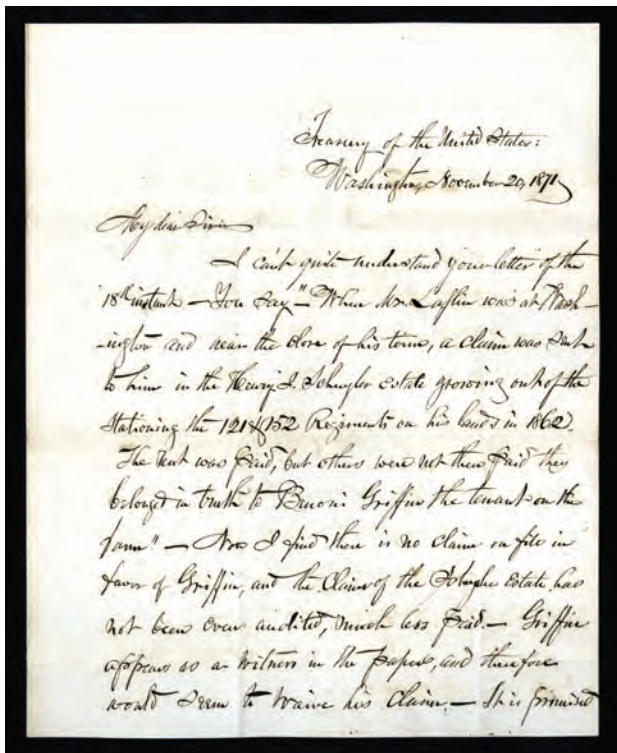 Treasury of the United States:
Washington, November 20, 1871
My dear Sir:
I can't quite understand your letter of the
18th instant — You say "— When Mr. Laflin was at Wash-
-ington and near the close of his term, a claim was sent
to him in the Henry I. Schuyler Estate growing out of the
Stationing the 121 & 152 Regiments on his lands in 1862.
The rent was paid, but others were not then paid they
belonged in truth to Benoni Griffin the tenant on the
farm" — Now I find there is no claim on file in
favor of Griffin, and the Claim of the Estate has
not been even audited, much less paid. — Griffin
appears as a witness in the papers, and therefore
would seem to waive his Claim. — It is promised